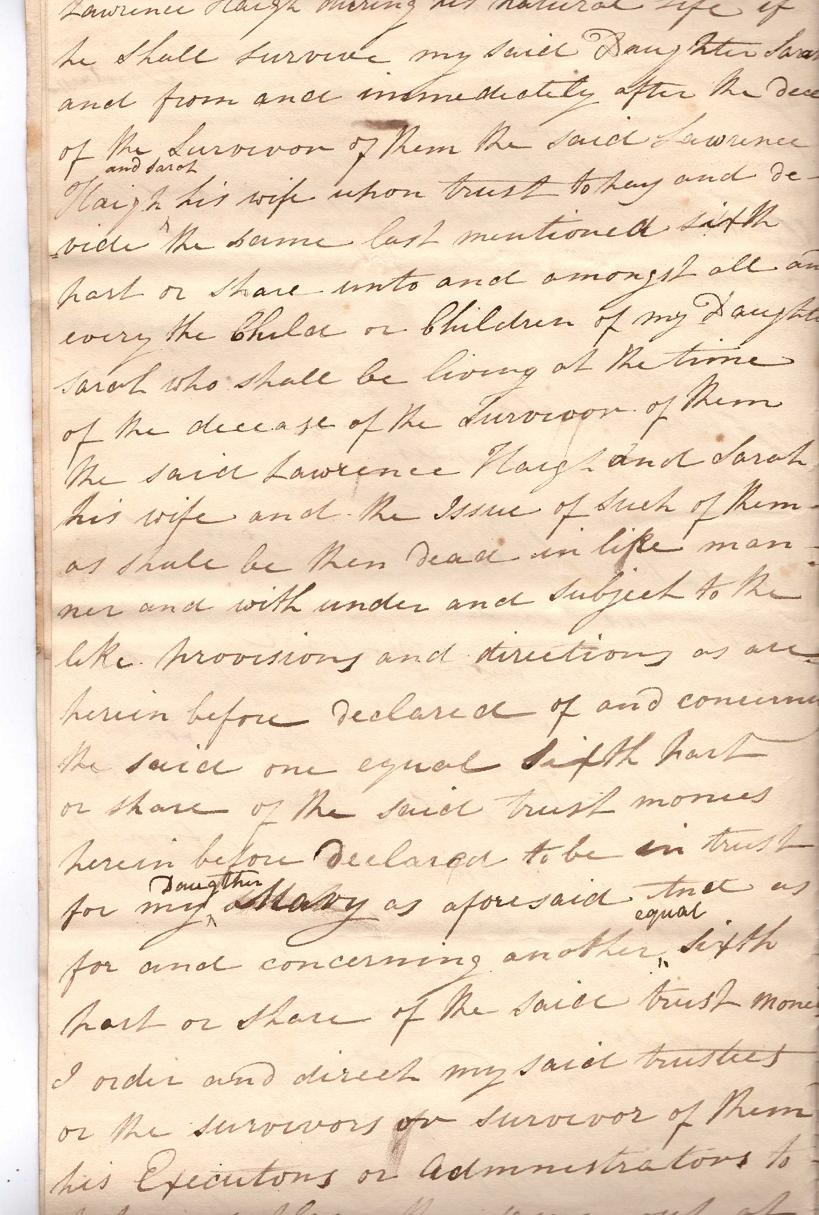 Lawrence Haigh during his natural life if
he shall survive my said Daughter Sarah
and from and immediately after the dece
of the Survivor of them the said Lawrence
and Sarah
Haigh his wife upon trust to pay and de-
vide the same last mentioned sixth
part or share unto and amongst all an
every the Child or Children of my Daughte
Sarah who shall be living at the time
of the decease of the Survivor of them
the said Lawrence Haigh and Sarah
his wife and the Issue of such of them
as shall be then dead in like man-
ner and with under and subject to the
like provisions and directions as are
herein before declared of and concerning
the said one equal sixth part
or share of the said trust monies
herein before Declared to be in trust
Daugther
for my Mary as aforesaid And as
equal
for and concerning another sixth
part or share of the said trust monies
I order and direct my said trustees
or the survivors or survivor of them
his Executors or Administrators to